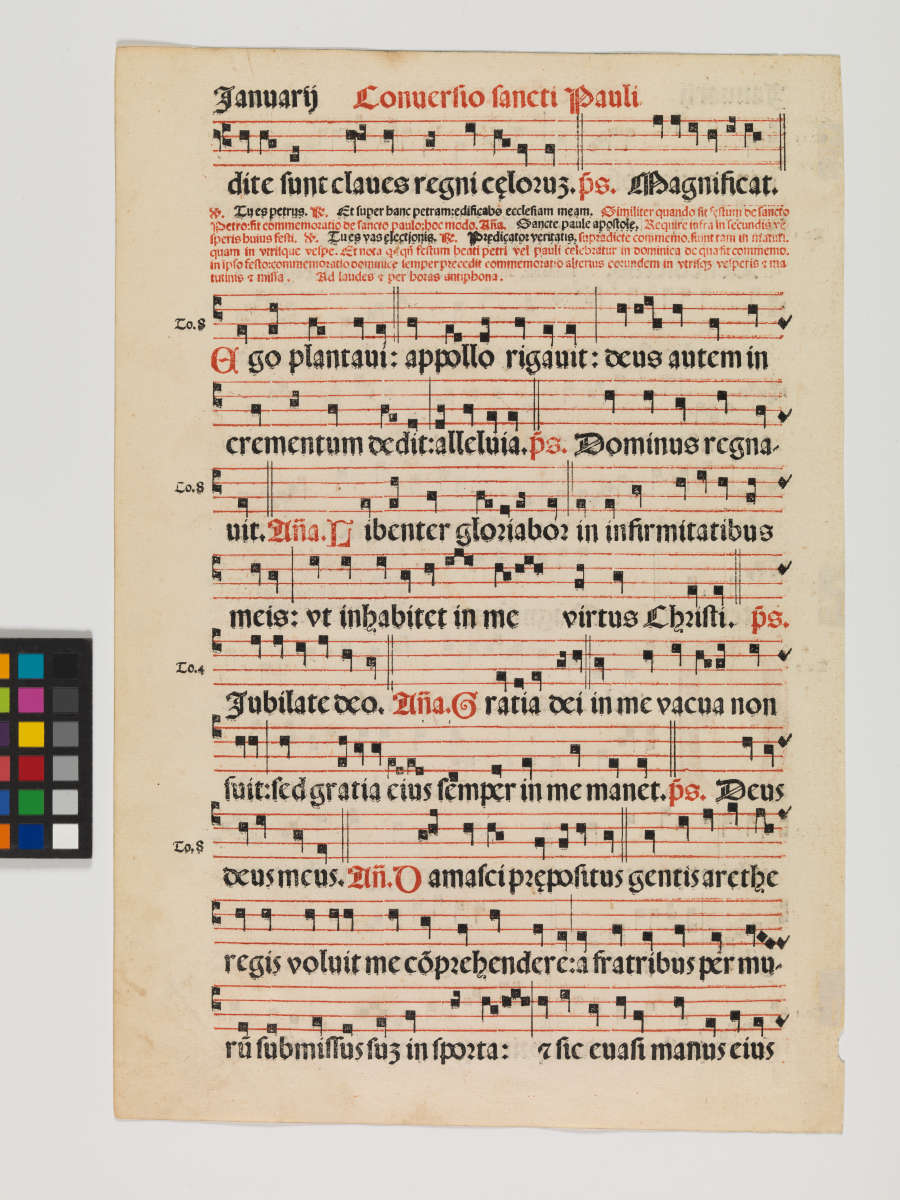 Januarij Conuersio sancti Pauli
dite sunt claues regni cęloruꝫ. p̄s. Magnificat.
℣. Tu es petrus. ℟. Et super hanc petram: edificabo ecclesiam meam. Similiter quando fit festum de sancto
Petro: fit commemoratio de sancto paulo: hoc modo. Aña. Sancte paule apostole, Require infra in secundis ve
speris huius festi. ℣. Tu es vas electionis. ℟. Predicator veritatis, supradicte commemo. fiunt tam in matuti.
quam in vtrisque vespe. Et nota ꝙ qñ festum beati petri vel pauli celebratur in dominica de qua fit commemo.
in ipso festo: commemoratio dominice semper precedit commemoratio alterius eorundem in vtrisqꝫ vesperis ⁊ ma
tutinis ⁊ missa. Ad laudes ⁊ per horas antiphona.
To. 8
Ego plantaui: appollo rigauit: deus autem in
crementum dedit: alleluia. p̄s. Dominus regna-
To. 8
uit. Aña. Libenter gloriabor in infirmitatibus
meis: vt inhabitet in me virtus Christi. p̄s.
To. 4
Jubilate deo. Aña. Gratia dei in me vacua non
fuit: sed gratia eius semper in me manet. p̄s. Deus
To. 8
deus meus. Añ. Damasci prępositus gentis arethe
regis voluit me cōprehendere: a fratribus per mu-
rū submissus suꝫ in sporta: ⁊ sic euasi manus eius